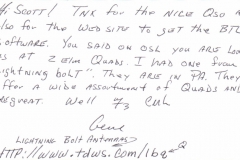 Hi Scott! TNX for the NICE QSO and
also for the WEB SITE to get the BTL
software. You said on QSL you are look
at 2 ELM Quads. I had one from
Lightning bolt". They are in PA. They
offer a wide assortment of Quads and
great. Well 73 CUL
Gene
LIGHTNING BOLT ANTENNAS
HTTP://www.tdws.com/lbq